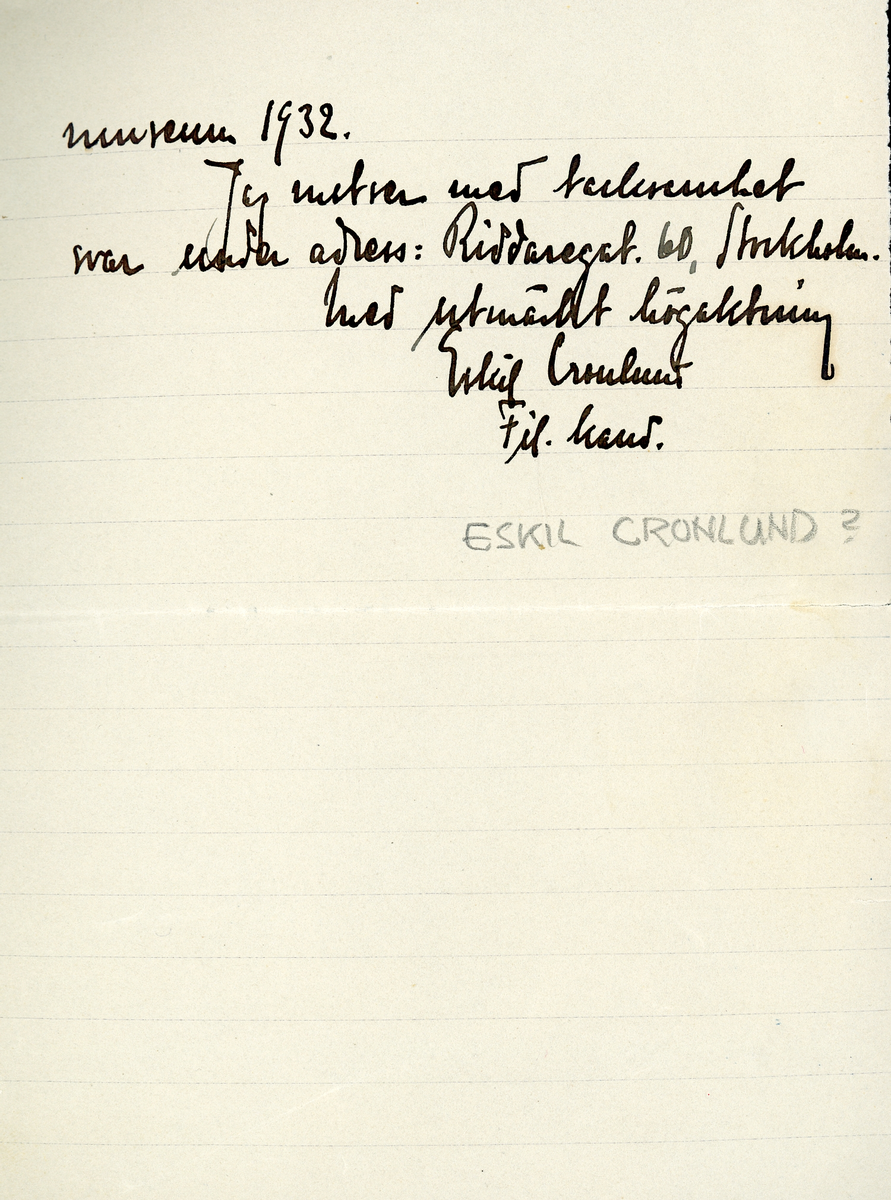 museum 1932.
Jag motser med tacksamhet
svar under adress: Riddaregat. 60, Stockholm.
Med utmärkt högaktning
Eskil Cronlund
Fil. kand.
ESKIL CRONLUND ?